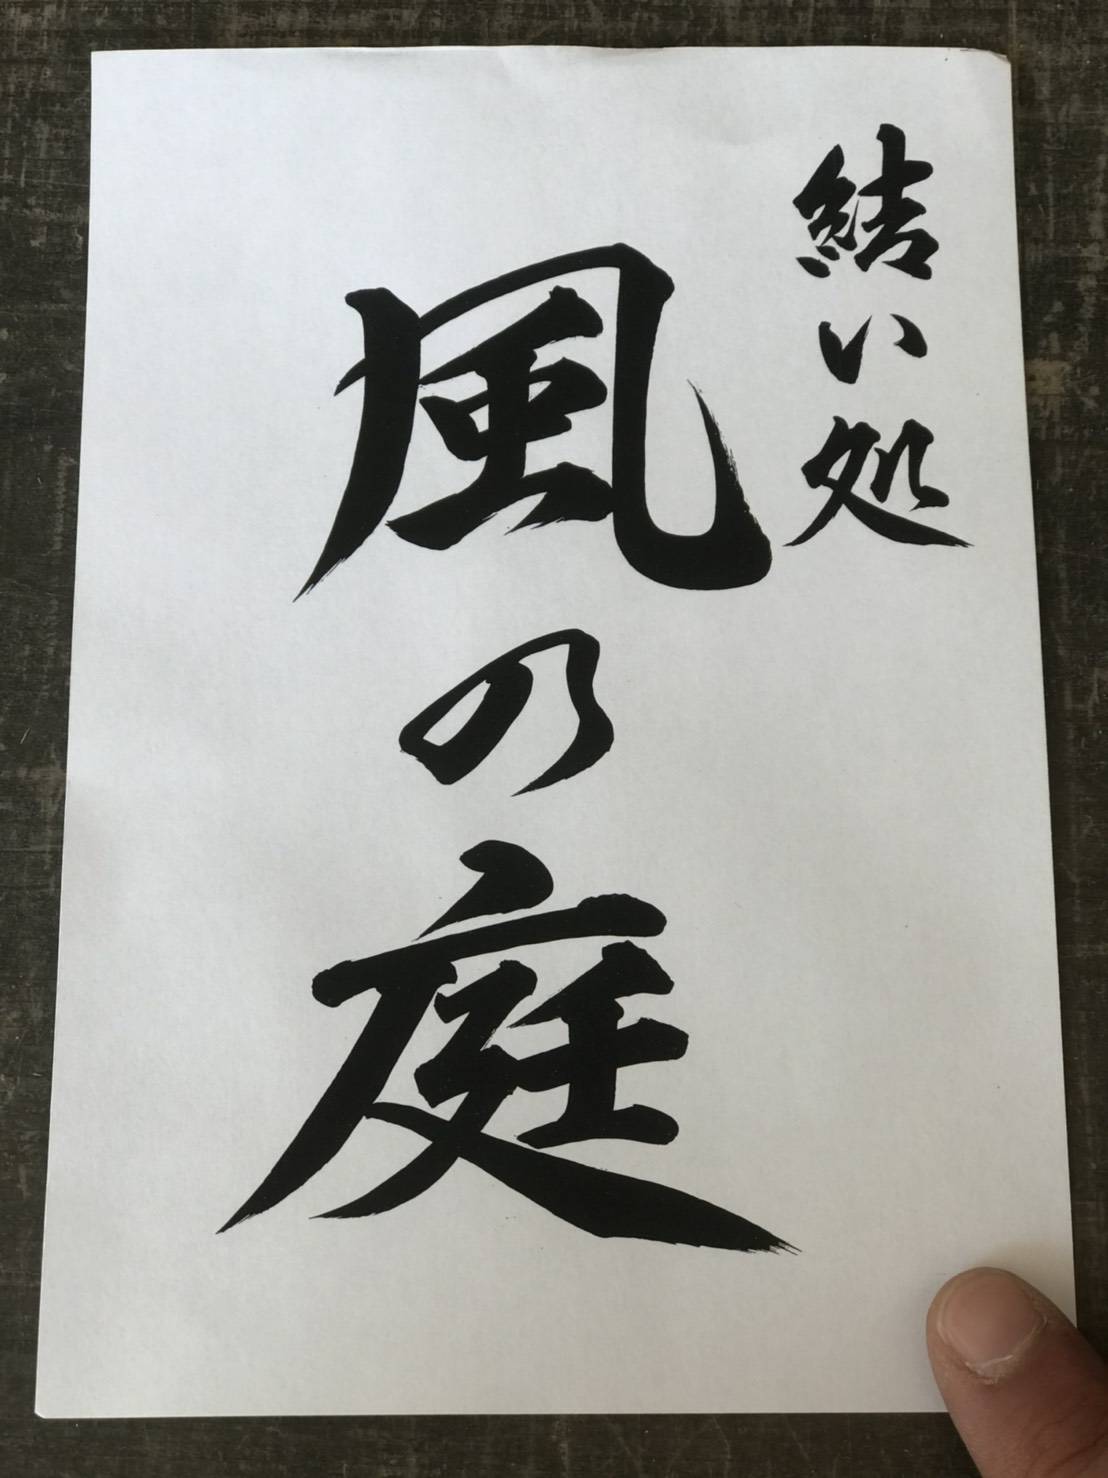 結い処
風の庭